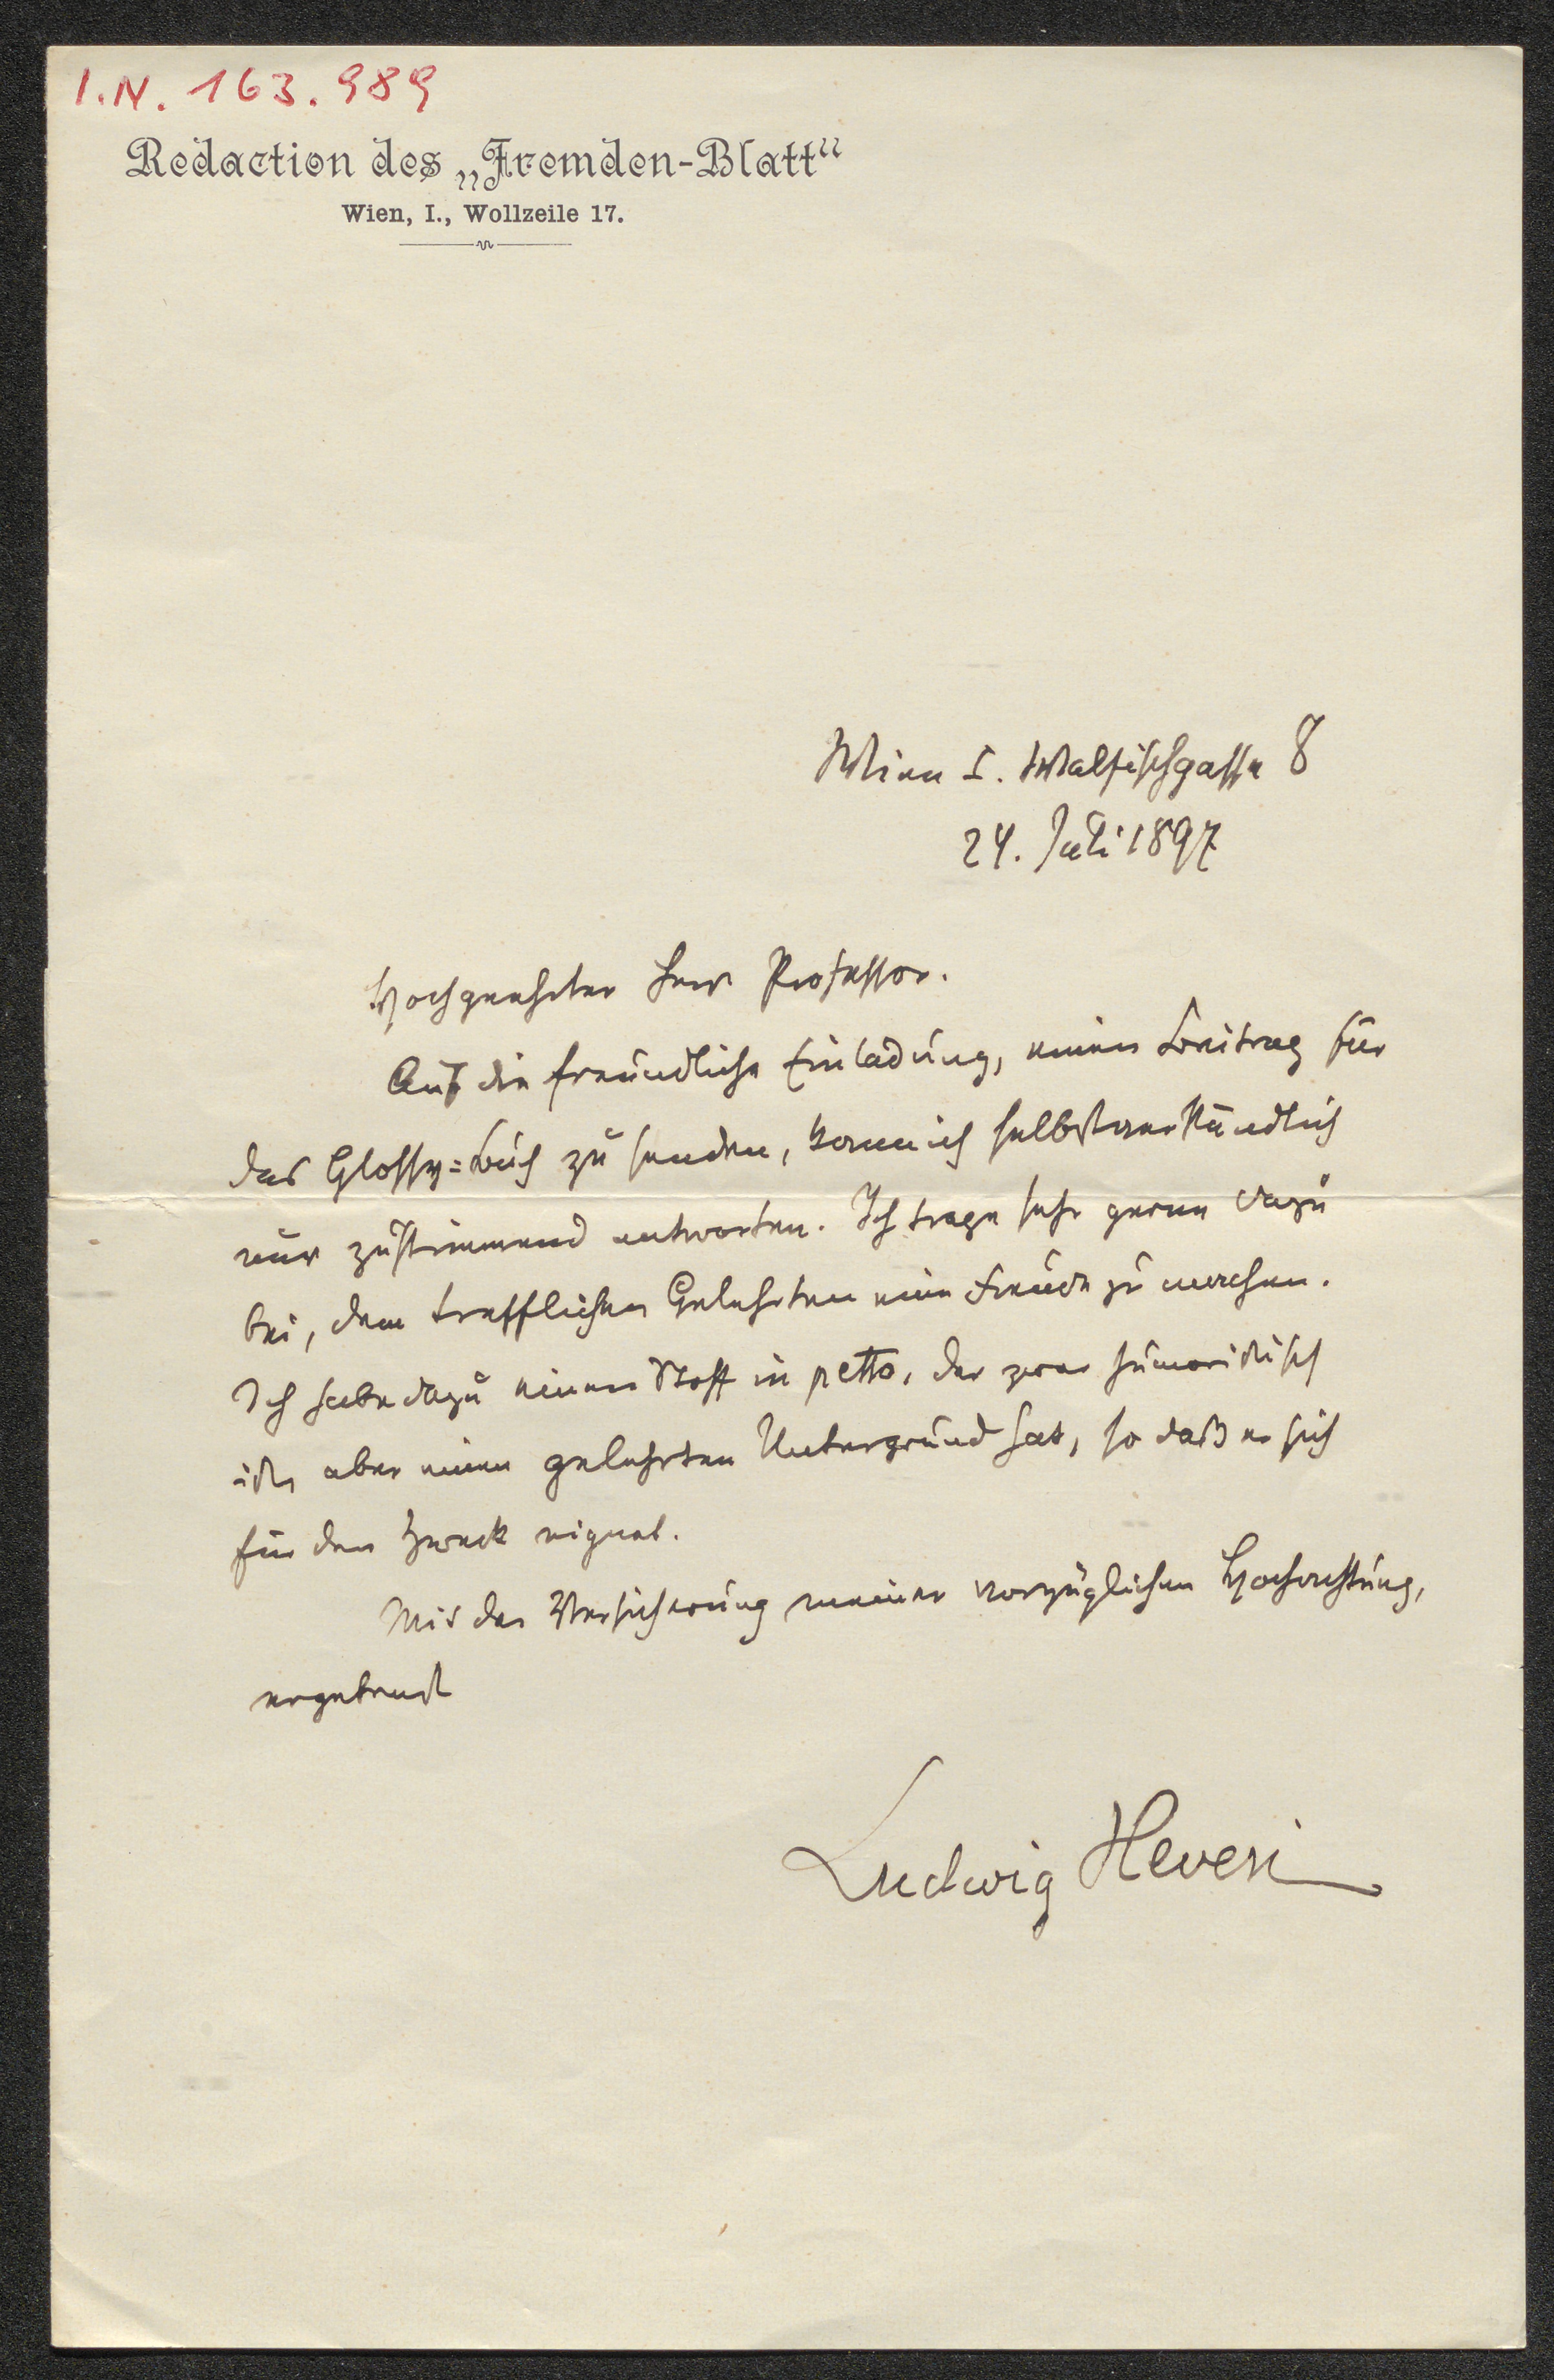 I.N. 163.989
Redaction des „Fremden-Blatt“
Wien, I., Wollzeile 17.
Wien I. Wallfischgasse 8
24. Juli 1897
Hochgeehrter Herr Professor.
Auf die freundliche Einladung, einen Beitrag für
das Glossy=Buch zu senden, kann ich selbstverständlich
nur zustimmend antworten. Ich trage sehr gerne dazu
bei, dem trefflichen Gelehrten eine Freude zu machen.
Ich habe dazu einen Stoff in petto, der zwar humoristisch
ist, aber einen gelehrten Untergrund hat, so daß er sich
für den Zweck eignet.
Mit der Versicherung meiner vorzüglichen Hochachtung,
ergebenst
Ludwig Hevesi